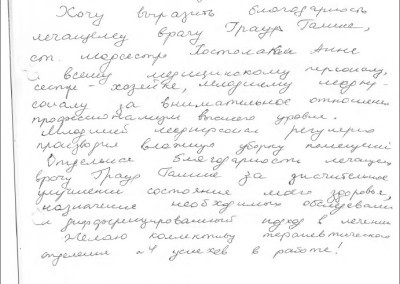 Хочу выразить благодарность
лечащему врачу Граур Галине,
ст. медсестре Анне
и всему медицинскому персоналу,
сестре - хозяйке, младшему медпер-
соналу за внимательное отношение
профессионализм высокого уровня.
Младший медперсонал регулярно
производил влажную уборку помещений
Отдельная благодарность лечащему
врачу Граур Галине за значительное
улучшение состояния моего здоровья,
назначение необходимого обследования
и дифференцированный подход в лечении
Желаю коллективу терапевтического
отделения №4 успехов в работе!